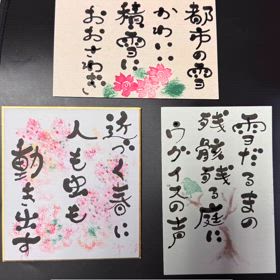 都市の雪
かわいい
積雪に
おおさわぎ
近づく春に
人も虫も
動き出す
雪だるまの
残骸残る庭に
ウグイスの声